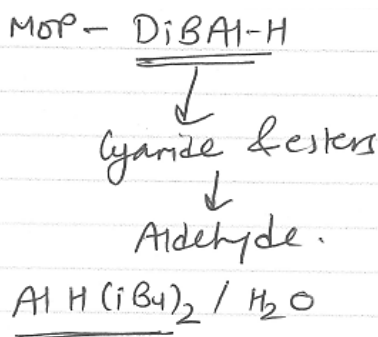 MOP - DiBAl-H
↓
Cyanide & esters
↓
Aldehyde.
Al H (iBu)2 / H2O